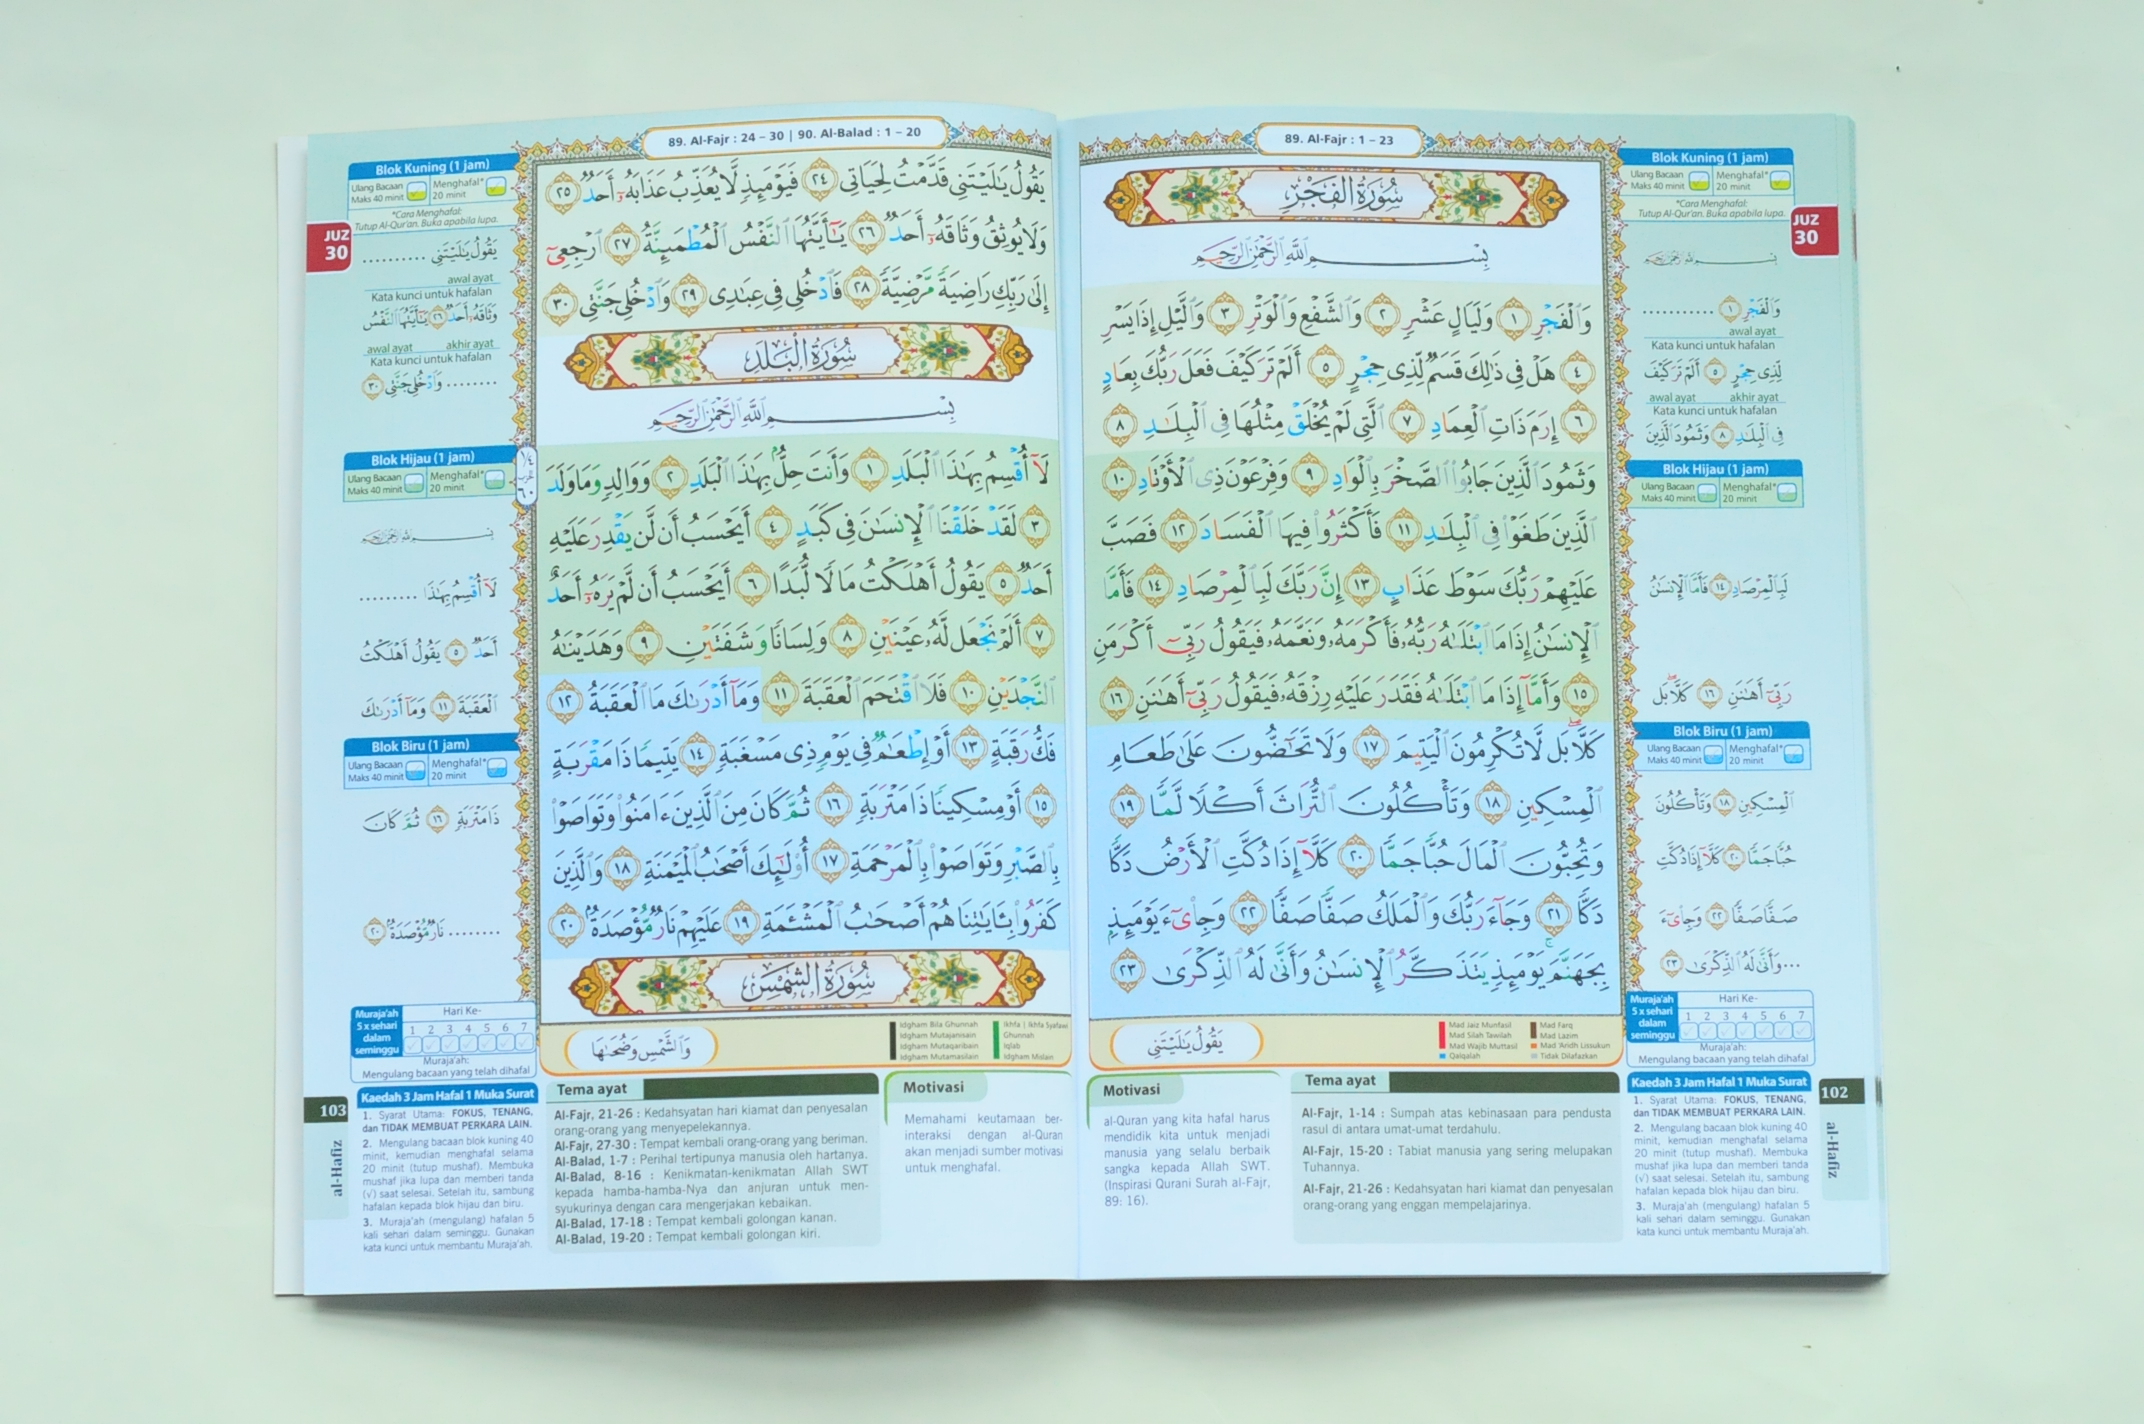 89. Al-Fajr : 1 – 23
سُورَةُ الفَجْرِ
بِسْمِ اللَّهِ الرَّحْمَٰنِ الرَّحِيمِ
وَالْفَجْرِ ١ وَلَيَالٍ عَشْرٍ ٢ وَالشَّفْعِ وَالْوَتْرِ ٣ وَاللَّيْلِ إِذَا يَسْرِ
٤ هَلْ فِي ذَٰلِكَ قَسَمٌ لِّذِي حِجْرٍ ٥ أَلَمْ تَرَ كَيْفَ فَعَلَ رَبُّكَ بِعَادٍ
٦ إِرَمَ ذَاتِ الْعِمَادِ ٧ الَّتِي لَمْ يُخْلَقْ مِثْلُهَا فِي الْبِلَادِ ٨
وَثَمُودَ الَّذِينَ جَابُوا الصَّخْرَ بِالْوَادِ ٩ وَفِرْعَوْنَ ذِي الْأَوْتَادِ ١٠
الَّذِينَ طَغَوْا فِي الْبِلَادِ ١١ فَأَكْثَرُوا فِيهَا الْفَسَادَ ١٢ فَصَبَّ
عَلَيْهِمْ رَبُّكَ سَوْطَ عَذَابٍ ١٣ إِنَّ رَبَّكَ لَبِالْمِرْصَادِ ١٤ فَأَمَّا
الْإِنسَانُ إِذَا مَا ابْتَلَاهُ رَبُّهُ فَأَكْرَمَهُ وَنَعَّمَهُ فَيَقُولُ رَبِّي أَكْرَمَنِ
١٥ وَأَمَّا إِذَا مَا ابْتَلَاهُ فَقَدَرَ عَلَيْهِ رِزْقَهُ فَيَقُولُ رَبِّي أَهَانَنِ ١٦
كَلَّا بَل لَّا تُكْرِمُونَ الْيَتِيمَ ١٧ وَلَا تَحَاضُّونَ عَلَىٰ طَعَامِ
الْمِسْكِينِ ١٨ وَتَأْكُلُونَ التُّرَاثَ أَكْلًا لَّمًّا ١٩
وَتُحِبُّونَ الْمَالَ حُبًّا جَمًّا ٢٠ كَلَّا إِذَا دُكَّتِ الْأَرْضُ دَكًّا
دَكًّا ٢١ وَجَاءَ رَبُّكَ وَالْمَلَكُ صَفًّا صَفًّا ٢٢ وَجِايءَ يَوْمَئِذٍ
بِجَهَنَّمَ يَوْمَئِذٍ يَتَذَكَّرُ الْإِنسَانُ وَأَنَّىٰ لَهُ الذِّكْرَىٰ ٢٣
يَقُولُ يَالَيْتَنِي
Mad Jaiz Munfasil
Mad Silah Tawilah
Mad Wajib Muttasil
Qalqalah
Mad Farq
Mad Lazim
Mad 'Aridh Lissukun
Tidak Dilafazkan
Blok Kuning (1 jam)
Ulang Bacaan Maks 40 minit
Menghafal* 20 minit
*Cara Menghafal:
Tutup Al-Qur'an. Buka apabila lupa.
JUZ 30
بِسْمِ اللَّهِ الرَّحْمَٰنِ الرَّحِيمِ
وَالْفَجْرِ ١ ...........
awal ayat
Kata kunci untuk hafalan
لِّذِي حِجْرٍ ٥ أَلَمْ تَرَ كَيْفَ
awal ayat akhir ayat
Kata kunci untuk hafalan
فِي الْبِلَادِ ٨ وَثَمُودَ الَّذِينَ
Blok Hijau (1 jam)
Ulang Bacaan Maks 40 minit
Menghafal* 20 minit
لَبِالْمِرْصَادِ ١٤ فَأَمَّا الْإِنسَانُ
رَبِّي أَهَانَنِ ١٦ كَلَّا بَل
Blok Biru (1 jam)
Ulang Bacaan Maks 40 minit
Menghafal* 20 minit
الْمِسْكِينِ ١٨ وَتَأْكُلُونَ
حُبًّا جَمًّا ٢٠ كَلَّا إِذَا دُكَّتِ
صَفًّا صَفًّا ٢٢ وَجِايءَ
...وَأَنَّىٰ لَهُ الذِّكْرَىٰ ٢٣
Muraja'ah 5 x sehari dalam seminggu
Hari Ke-
1 2 3 4 5 6 7
Muraja'ah:
Mengulang bacaan yang telah dihafal
Motivasi
al-Quran yang kita hafal harus
mendidik kita untuk menjadi
manusia yang selalu berbaik
sangka kepada Allah SWT.
(Inspirasi Qurani Surah al-Fajr,
89: 16).
Tema ayat
Al-Fajr, 1-14 : Sumpah atas kebinasaan para pendusta
rasul di antara umat-umat terdahulu.
Al-Fajr, 15-20 : Tabiat manusia yang sering melupakan
Tuhannya.
Al-Fajr, 21-26 : Kedahsyatan hari kiamat dan penyesalan
orang-orang yang enggan mempelajarinya.
Kaedah 3 Jam Hafal 1 Muka Surat
1. Syarat Utama: FOKUS, TENANG,
dan TIDAK MEMBUAT PERKARA LAIN.
2. Mengulang bacaan blok kuning 40
minit, kemudian menghafal selama
20 minit (tutup mushaf). Membuka
mushaf jika lupa dan memberi tanda
(√) saat selesai. Setelah itu, sambung
hafalan kepada blok hijau dan biru.
3. Muraja'ah (mengulang) hafalan 5
kali sehari dalam seminggu. Gunakan
kata kunci untuk membantu Muraja'ah.
102
al-Hafiz
89. Al-Fajr : 24 – 30 | 90. Al-Balad : 1 – 20
يَقُولُ يَالَيْتَنِي قَدَّمْتُ لِحَيَاتِي ٢٤ فَيَوْمَئِذٍ لَّا يُعَذِّبُ عَذَابَهُ أَحَدٌ ٢٥
وَلَا يُوثِقُ وَثَاقَهُ أَحَدٌ ٢٦ يَاأَيَّتُهَا النَّفْسُ الْمُطْمَئِنَّةُ ٢٧ ارْجِعِي
إِلَىٰ رَبِّكِ رَاضِيَةً مَّرْضِيَّةً ٢٨ فَادْخُلِي فِي عِبَادِي ٢٩ وَادْخُلِي جَنَّتِي ٣٠
سُورَةُ البَلَدِ
بِسْمِ اللَّهِ الرَّحْمَٰنِ الرَّحِيمِ
لَا أُقْسِمُ بِهَٰذَا الْبَلَدِ ١ وَأَنتَ حِلٌّ بِهَٰذَا الْبَلَدِ ٢ وَوَالِدٍ وَمَا وَلَدَ
٣ لَقَدْ خَلَقْنَا الْإِنسَانَ فِي كَبَدٍ ٤ أَيَحْسَبُ أَن لَّن يَقْدِرَ عَلَيْهِ
أَحَدٌ ٥ يَقُولُ أَهْلَكْتُ مَالًا لُّبَدًا ٦ أَيَحْسَبُ أَن لَّمْ يَرَهُ أَحَدٌ
٧ أَلَمْ نَجْعَل لَّهُ عَيْنَيْنِ ٨ وَلِسَانًا وَشَفَتَيْنِ ٩ وَهَدَيْنَاهُ
النَّجْدَيْنِ ١٠ فَلَا اقْتَحَمَ الْعَقَبَةَ ١١ وَمَا أَدْرَاكَ مَا الْعَقَبَةُ ١٢
فَكُّ رَقَبَةٍ ١٣ أَوْ إِطْعَامٌ فِي يَوْمٍ ذِي مَسْغَبَةٍ ١٤ يَتِيمًا ذَا مَقْرَبَةٍ
١٥ أَوْ مِسْكِينًا ذَا مَتْرَبَةٍ ١٦ ثُمَّ كَانَ مِنَ الَّذِينَ ءَامَنُوا وَتَوَاصَوْا
بِالصَّبْرِ وَتَوَاصَوْا بِالْمَرْحَمَةِ ١٧ أُولَٰئِكَ أَصْحَابُ الْمَيْمَنَةِ ١٨ وَالَّذِينَ
كَفَرُوا بِئَايَاتِنَا هُمْ أَصْحَابُ الْمَشْئَمَةِ ١٩ عَلَيْهِمْ نَارٌ مُّؤْصَدَةٌ ٢٠
سُورَةُ الشَّمْسِ
وَالشَّمْسِ وَضُحَاهَا
Idgham Bila Ghunnah
Idgham Mutajanisain
Idgham Mutaqaribain
Idgham Mutamasilain
Ikhfa | Ikhfa Syafawi
Ghunnah
Iqlab
Idgham Mislain
Blok Kuning (1 jam)
Ulang Bacaan Maks 40 minit
Menghafal* 20 minit
*Cara Menghafal:
Tutup Al-Qur'an. Buka apabila lupa.
JUZ 30
يَقُولُ يَالَيْتَنِي ..........
awal ayat
Kata kunci untuk hafalan
وَثَاقَهُ أَحَدٌ ٢٦ يَاأَيَّتُهَا النَّفْسُ
awal ayat akhir ayat
Kata kunci untuk hafalan
........ وَادْخُلِي جَنَّتِي ٣٠
Blok Hijau (1 jam)
Ulang Bacaan Maks 40 minit
Menghafal* 20 minit
١/٤ حزب ٦٠
بِسْمِ اللَّهِ الرَّحْمَٰنِ الرَّحِيمِ
لَا أُقْسِمُ بِهَٰذَا .........
أَحَدٌ ٥ يَقُولُ أَهْلَكْتُ
الْعَقَبَةَ ١١ وَمَا أَدْرَاكَ
Blok Biru (1 jam)
Ulang Bacaan Maks 40 minit
Menghafal* 20 minit
ذَا مَتْرَبَةٍ ١٦ ثُمَّ كَانَ
........ نَارٌ مُّؤْصَدَةٌ ٢٠
Muraja'ah 5 x sehari dalam seminggu
Hari Ke-
1 2 3 4 5 6 7
Muraja'ah:
Mengulang bacaan yang telah dihafal
Kaedah 3 Jam Hafal 1 Muka Surat
1. Syarat Utama: FOKUS, TENANG,
dan TIDAK MEMBUAT PERKARA LAIN.
2. Mengulang bacaan blok kuning 40
minit, kemudian menghafal selama
20 minit (tutup mushaf). Membuka
mushaf jika lupa dan memberi tanda
(√) saat selesai. Setelah itu, sambung
hafalan kepada blok hijau dan biru.
3. Muraja'ah (mengulang) hafalan 5
kali sehari dalam seminggu. Gunakan
kata kunci untuk membantu Muraja'ah.
103
al-Hafiz
Tema ayat
Al-Fajr, 21-26 : Kedahsyatan hari kiamat dan penyesalan
orang-orang yang menyepelekannya.
Al-Fajr, 27-30 : Tempat kembali orang-orang yang beriman.
Al-Balad, 1-7 : Perihal tertipunya manusia oleh hartanya.
Al-Balad, 8-16 : Kenikmatan-kenikmatan Allah SWT
kepada hamba-hamba-Nya dan anjuran untuk men-
syukurinya dengan cara mengerjakan kebaikan.
Al-Balad, 17-18 : Tempat kembali golongan kanan.
Al-Balad, 19-20 : Tempat kembali golongan kiri.
Motivasi
Memahami keutamaan ber-
interaksi dengan al-Quran
akan menjadi sumber motivasi
untuk menghafal.